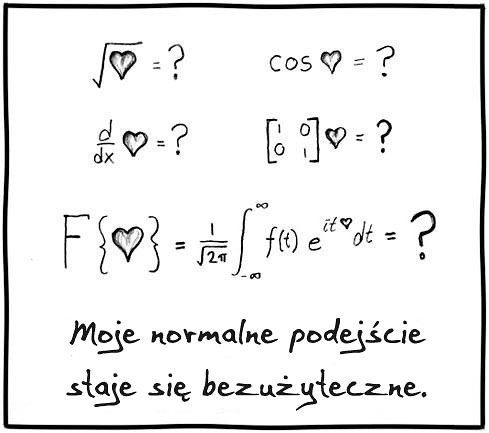 √♥ = ? cos ♥ = ?
d/dx ♥ = ? [1 0 0 1] ♥ = ?
F{♥} = 1/√2π ∫_{-∞}^{∞} f(t) e^{it♥} dt = ?
Moje normalne podejście
staje się bezużyteczne.